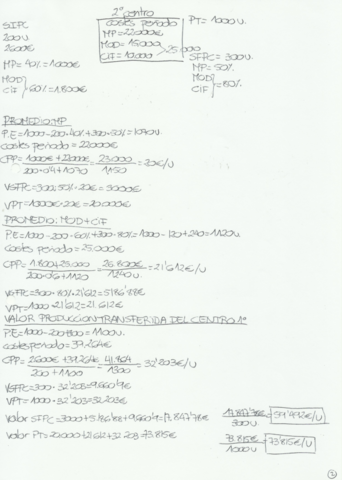 2º centro
SIPC
200u
2600€
MP= 40% = 1000€
MOD
CIF
60% = 1800€
costes periodo
MP = 22000€
MOD = 15000
CIF = 10000
25000
PT = 1000u.
SFPC = 300u
MP = 50%
MOD
CIF
= 80%
PROMEDIO MP
P.E = 1000 - 200·40% + 300·50% = 1070u
costes periodo = 22000€
CPP = 1000€ + 22000€ / 200·0'4 + 1070 = 23.000 / 1150 = 20€/u
VSFPC = 300·50%·20€ = 3000€
VPT = 1000€·20€ = 20.000€
PROMEDIO: MOD + CIF
P.E = 1000 - 200·60% + 300·80% = 1000 - 120 + 240 = 1120u.
costes periodo = 25.000€
CPP = 1.800 + 25.000 / 200·0'6 + 1120 = 26.800€ / 1240u = 21'612€/u
VSFPC = 300·80%·21'612 = 5186'88€
VPT = 1000·21'612 = 21.612€
VALOR PRODUCCION TRANSFERIDA DEL CENTRO 1º
P.E = 1000 - 200 + 300 = 1100u.
costes periodo = 39.264€
CPP = 2600€ + 39.264€ / 200 + 1100 = 41.864 / 1300 = 32'203€/u
VSFPC = 300·32'203 = 9.660'9€
VPT = 1000·32'203 = 32.203€
Valor SFPC = 3000 + 5186'88 + 9660'9 = 17.847'78€
17.847'78€ / 300u = 59'492€/u
Valor PT = 20.000 + 21.612 + 32.203 = 73.815€
73.815€ / 1000u = 73'815€/u